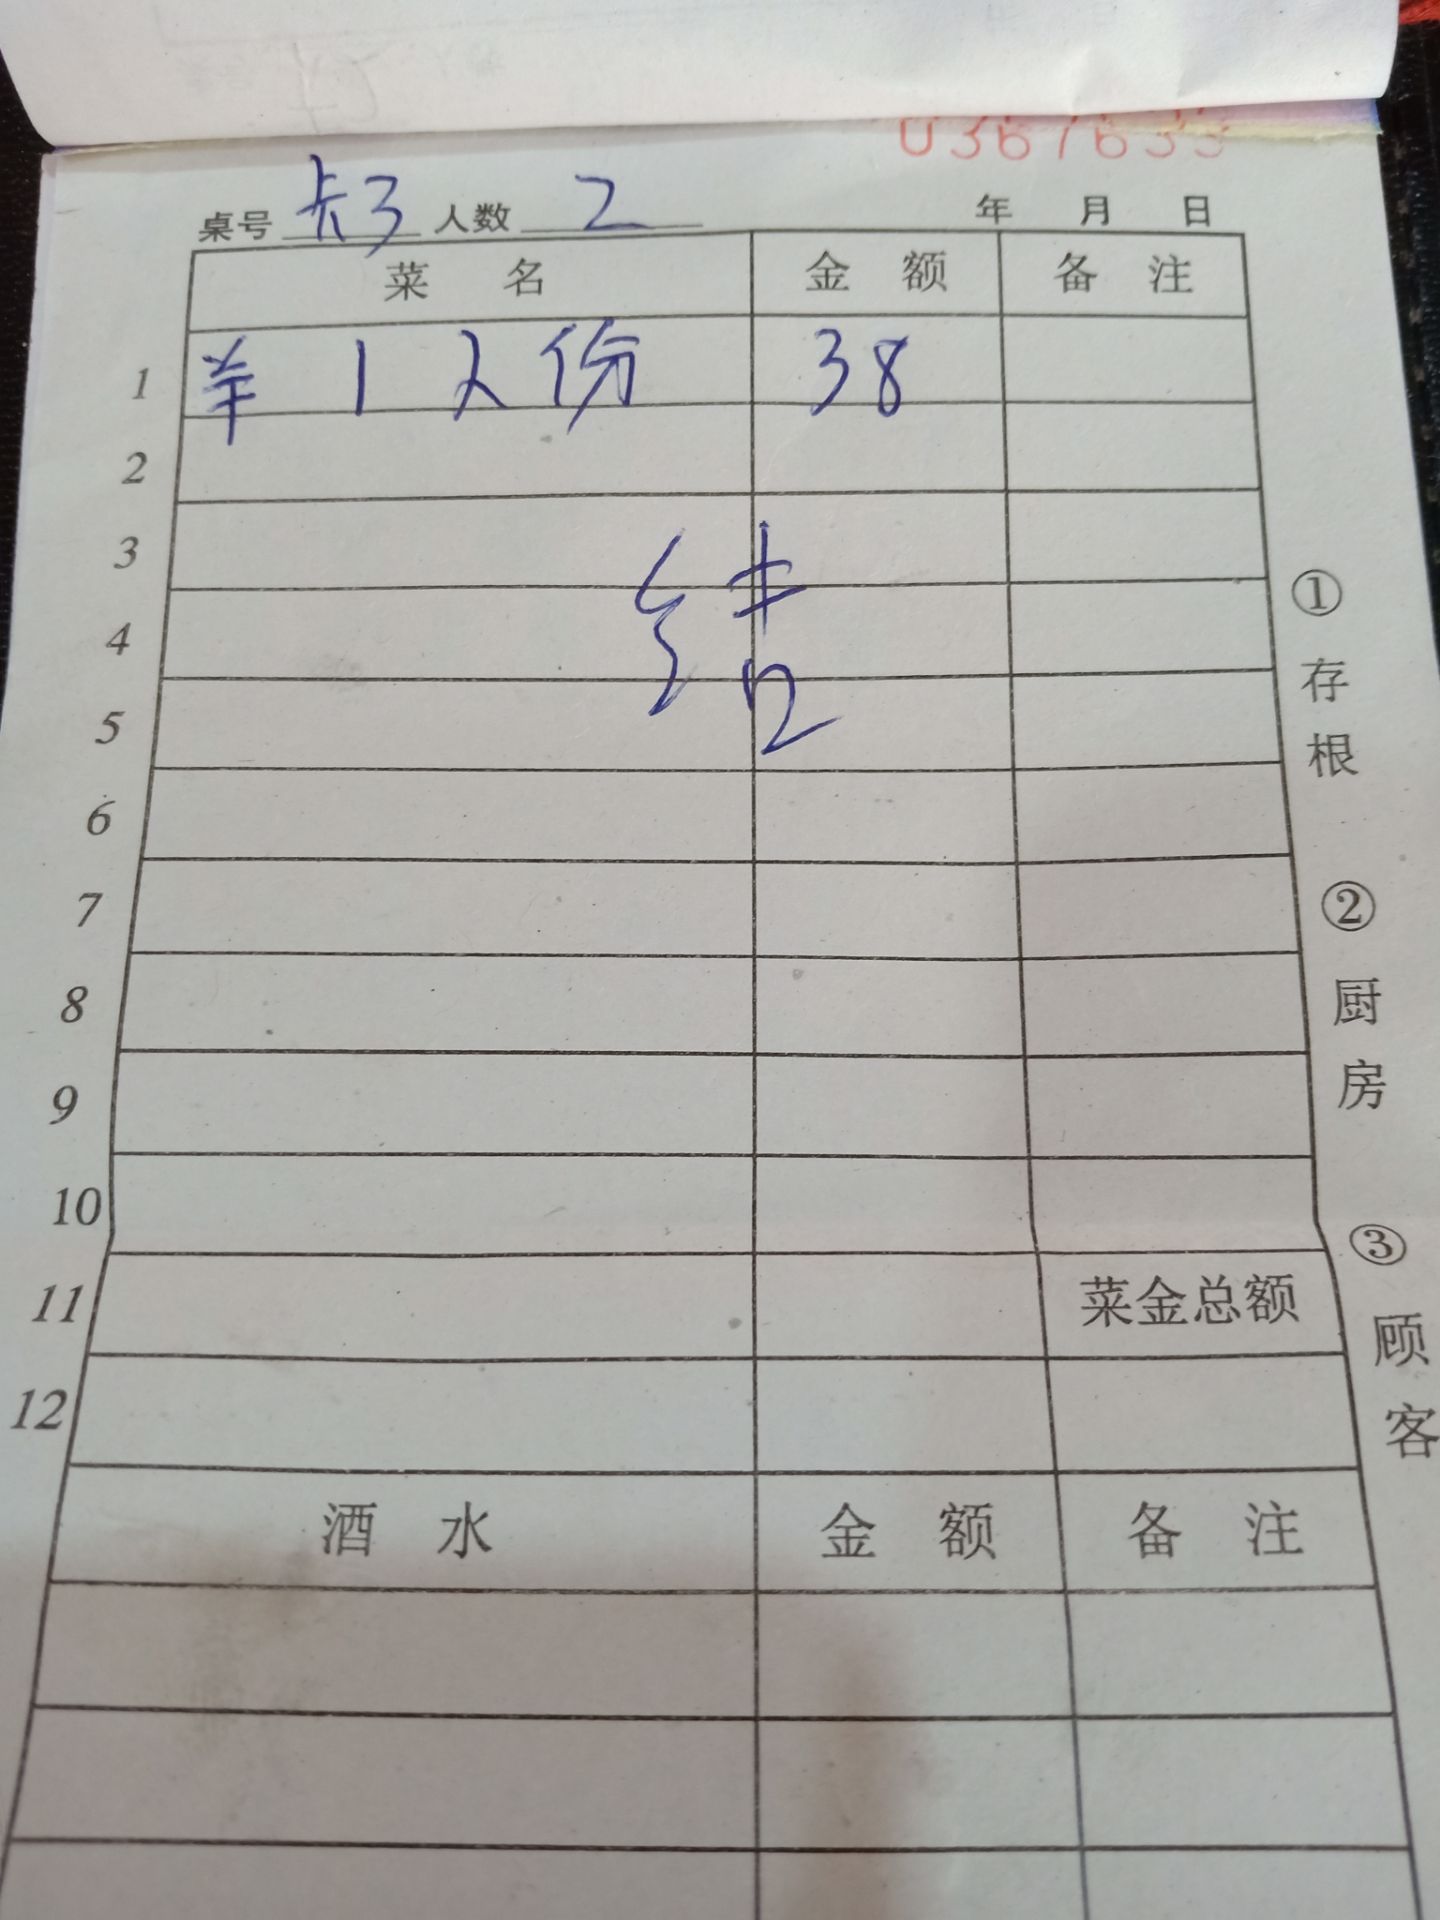 0367633
桌号 卡3 人数 2 年 月 日
菜 名 金 额 备 注
1 羊 1 人份 38
2
3
结
4
5
6
7
8
9
10
11 菜金总额
12
酒 水 金 额 备 注
①存根 ②厨房 ③顾客